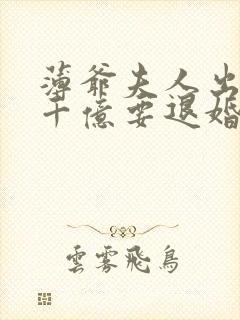 薄爺夫人出
十億要退婚
雲霧飛鳥